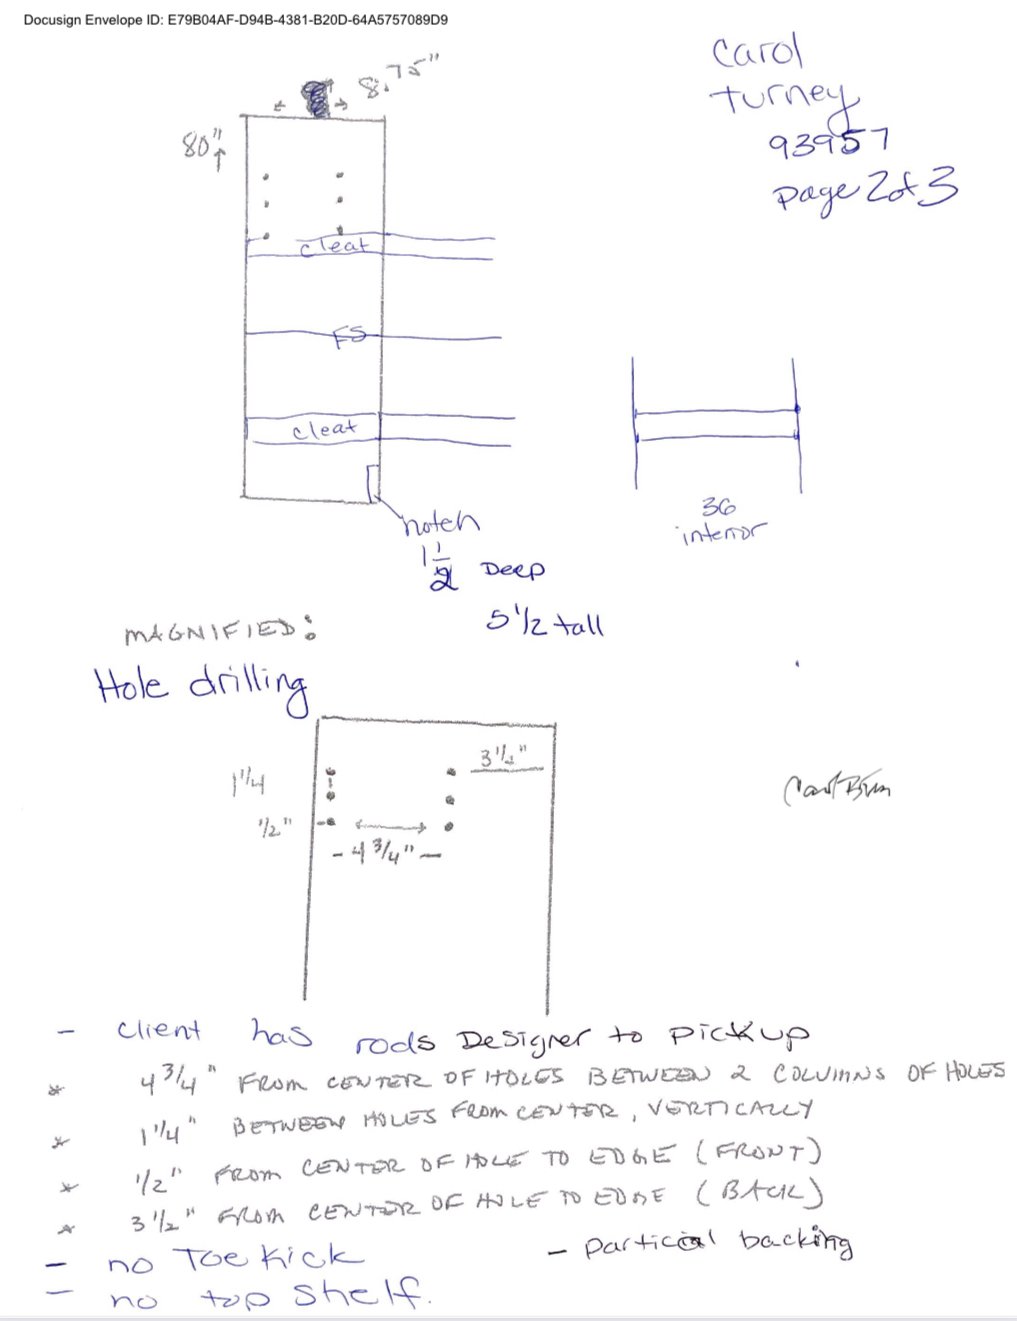 Docusign Envelope ID: E79B04AF-D94B-4381-B20D-64A5757089D9
Carol
turney
93957
page 2 of 3
8.75"
80"
cleat
FS
cleat
notch
1 1/2 Deep
5 1/2 tall
36
interior
MAGNIFIED:
Hole drilling
3 1/4"
1 1/4
1/2"
- 4 3/4" -
- client has rods Designer to pickup
* 4 3/4" FROM CENTER OF HOLES BETWEEN 2 COLUMNS OF HOLES
* 1 1/4" BETWEEN HOLES FROM CENTER, VERTICALLY
* 1/2" FROM CENTER OF HOLE TO EDGE (FRONT)
* 3 1/2" FROM CENTER OF HOLE TO EDGE (BACK)
- no Toe Kick
- partical backing
- no top shelf.